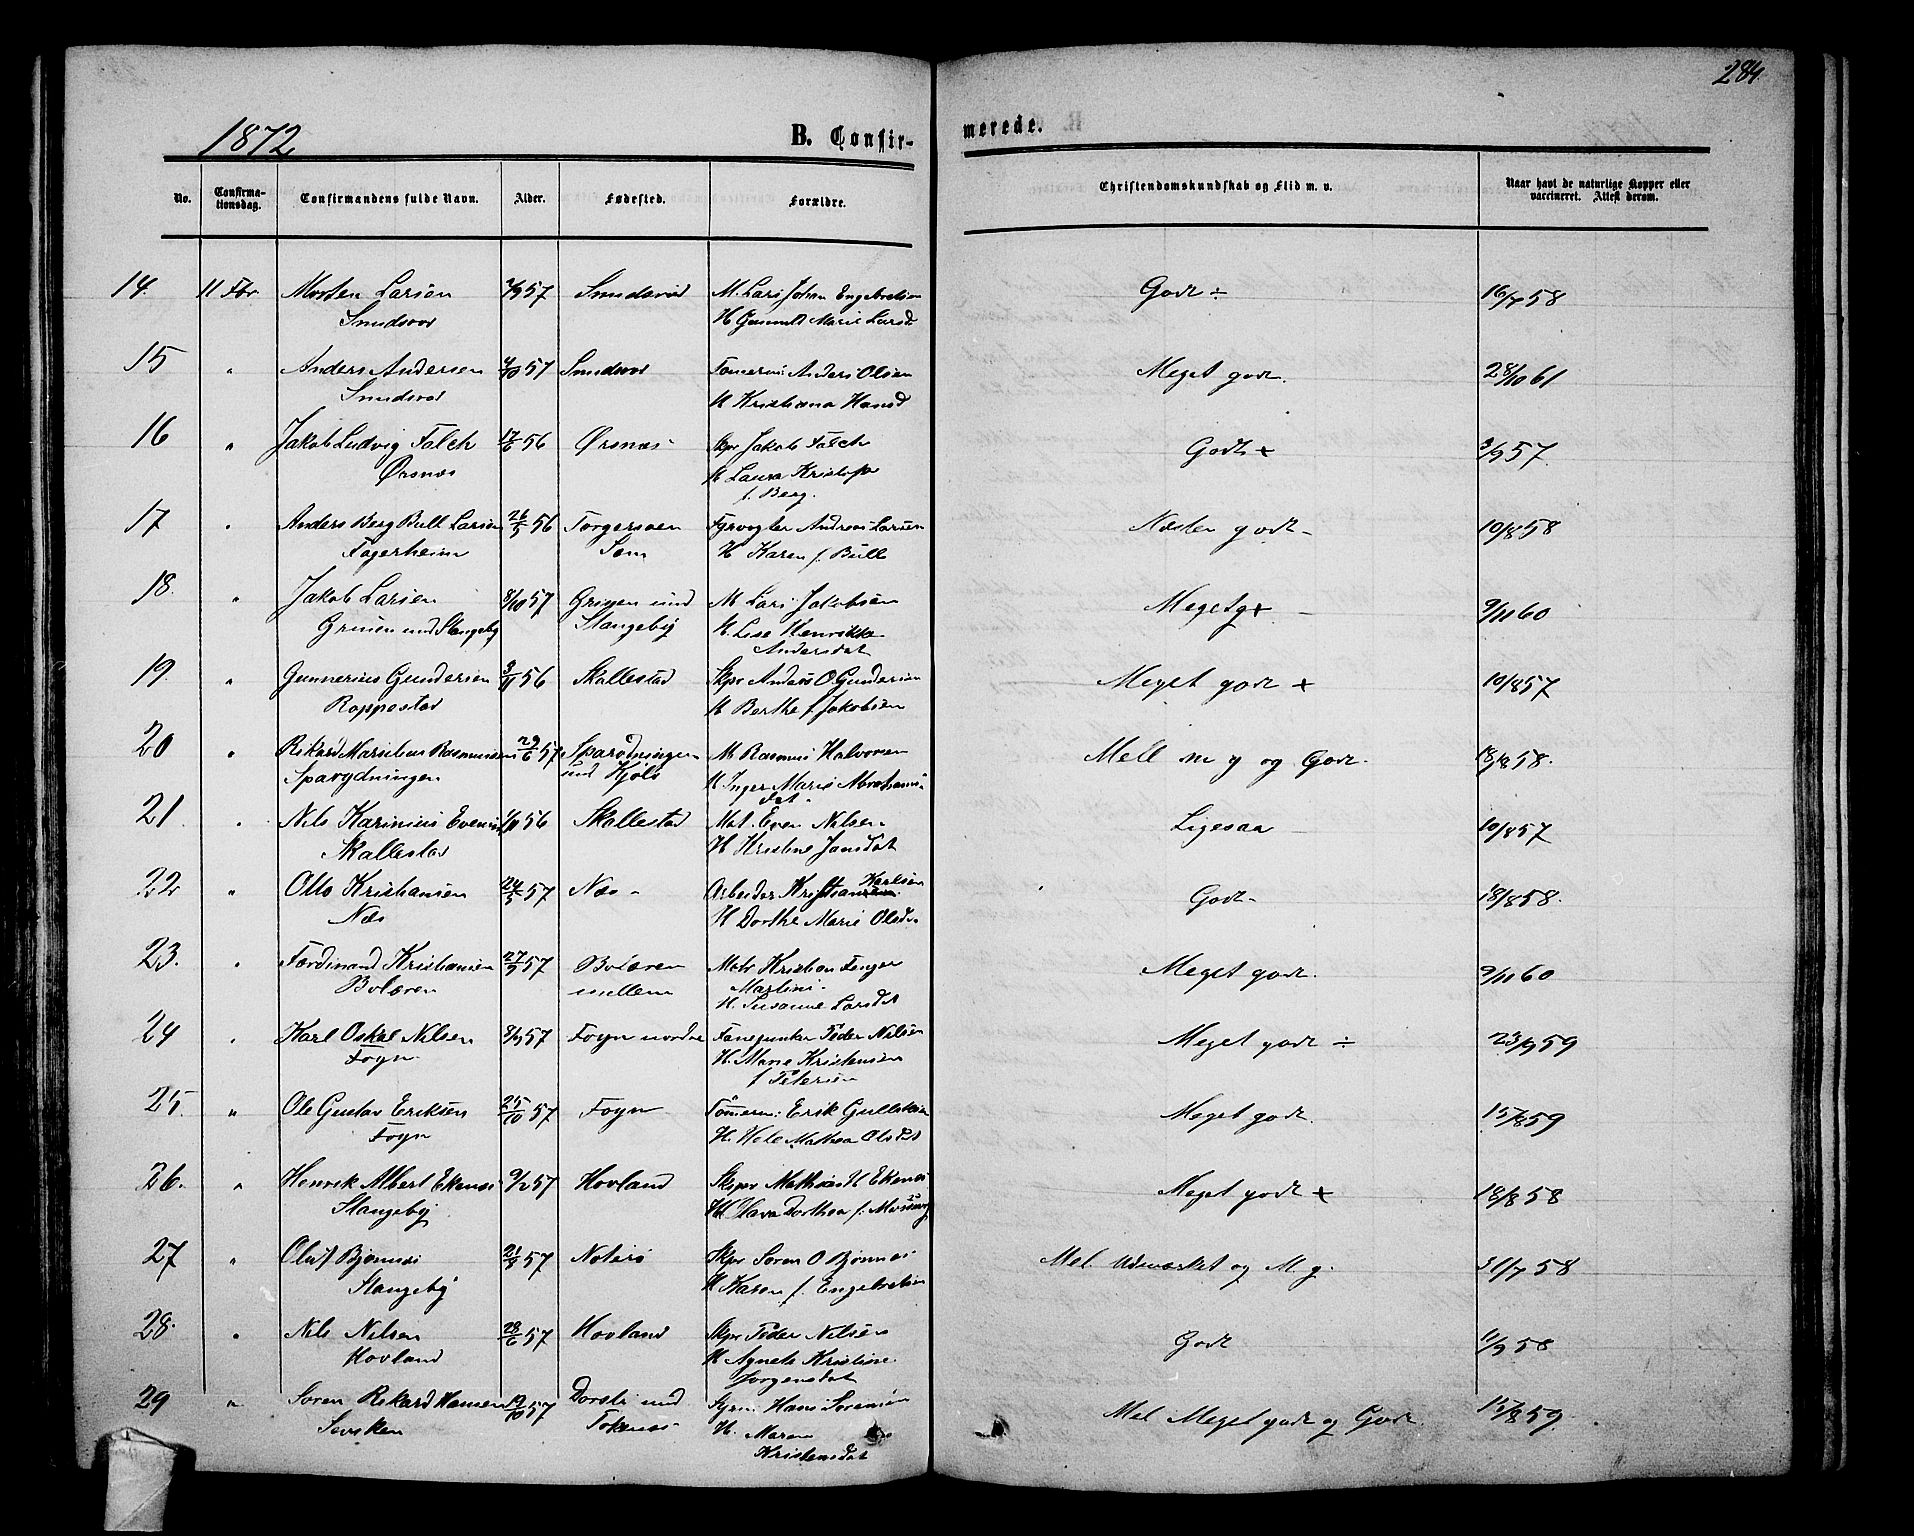 284.
1872
B. Confir-
merede.
No.
Confirma-
tionsdag.
Confirmandens fulde Navn.
Alder.
Fødested.
Forældre.
Christendomskundskab og Flid m. v.
Naar havt de naturlige Kopper eller
vaccineret. Attest derom.
14. 11 Febr Morten Larsen 57 Smidsrød M. Lars Johan Engebretsen Godt ÷ 16/7 58
Smidsrød H Gunnild Marie Larsd
15 " Anders Andersen 4/10 57 Smidsrød Tømerm Anders Olsen Meget godt. 28/10 61
Smidsrød H Kristiana Hansd
16 " Jakob Ludvig Falch 17/6 56 Ørsnæs Skpr Jakob Falch Godt + 3/9 57.
Ørsnæs H Laura Kristofa
f. Berg.
17 " Anders Berg Bull Larsen 26/5 56 Torgersøen Fyrvogter Andreas Larsen Næsten godt - 10/8 58
Fagerheim Sem H Karen f. Bull
18. " Jakob Larsen 8/10 57 Grinen und M Lars Jakobsen Meget g + 9/11 60
Grinen und Stangeby Stangeby H. Lise Henrikke
Andersdat
19. " Gunnerius Gundersen 3/11 56 Skallestad Skpr Anders O Gundersen Meget godt + 10/8 57
Roppestad H Berthe f. Jakobsen
20 " Rikard Marselius Rasmussen 29/6 57 Sparødningen M Rasmus Halvorsen Mell m g og Godt. 18/8 58.
Sparødningen und Kjøle H Inger Marie Abrahams-
dat
21. " Nils Karinius Evensen 56 Skallestad Mat. Even Nilsen Ligesaa 10/8 57
Skallestad H Kristine Jansdat
22 " Otto Kristiansen 24/5 57 Næs - Arbeider Kristian Karlsen Godt - 18/8 58.
Næs H Dorthe Marie Olsdat
23. " Ferdinand Kristiansen 27/7 57 Bolæren Matr Kristian Fenger Meget godt. 9/11 60
Bolæren mellem Martini.
H. Susanne Larsdat
24 " Karl Oskar Nilsen 8/9 57 Foyn nordre Fanejunker Peder Nilsen Meget godt ÷ 23/9 59
Foyn H. Marie Kristensen
f Petersen
25. " Ole Gustav Eriksen 25/10 57 Foyn Tømerm: Erik Gulliksen Meget godt. 15/8 59
Foyn H. Hele Mathea Olsdat
26. " Henrik Albert Ekenæs 9/2 57 Hovland Skpr Mathias H Ekenæs Meget godt + 18/8 58
Stangeby H Hava Dorthea f.
27 " Oluf Bjønnes 21/8 57 Nøterø Skpr Søren O Bjønnes Mel Udmærket og M g. 31/7 58
Stangeby H Karen f. Engebretsen
28. " Nils Nilsen 28/6 57 Hovland Skpr Peder Nilsen Godt 11/9 58
Hovland H Agnete Kristine
Jørgensdat
29 " Søren Rikard Hansen 12/10 57 Torste und Styrm: Hans Sørensen Mel Meget godt og Godt. 15/8 59.
Tokenæs H. Maren
Kristensdat